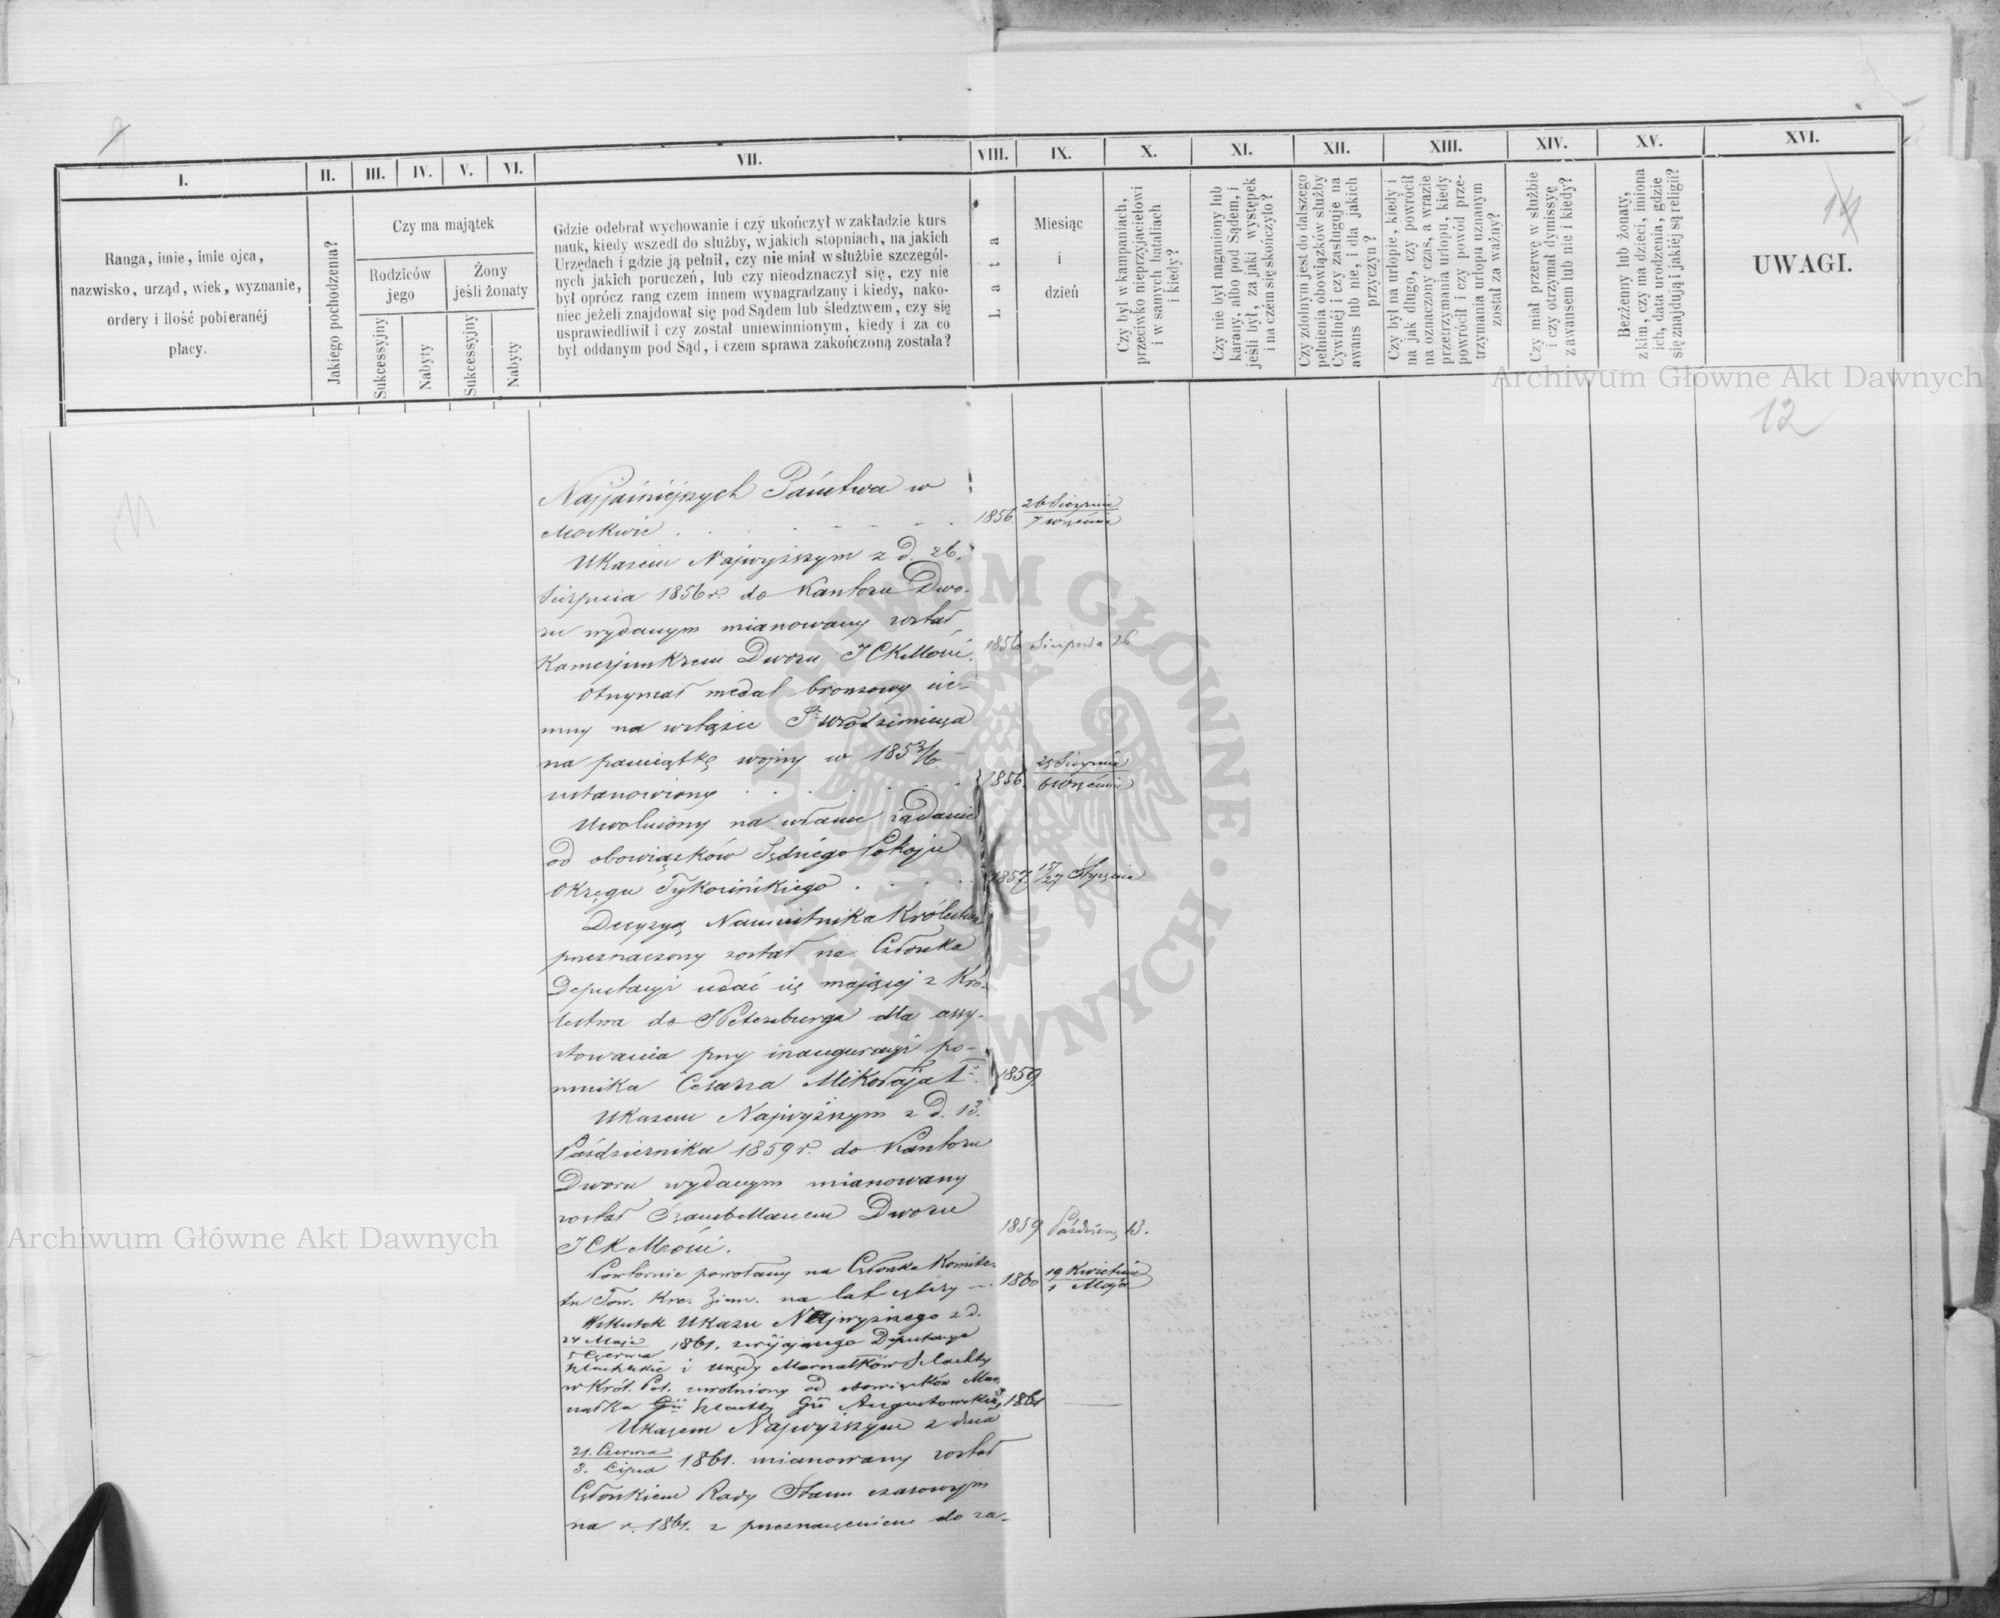 I.
II.
III.
IV.
V.
VI.
VII.
VIII.
IX.
X.
XI.
XII.
XIII.
XIV.
XV.
XVI.
Ranga, imie, imie ojca,
nazwisko, urząd, wiek, wyznanie,
ordery i ilość pobieranéj
płacy.
Jakiego pochodzenia?
Czy ma majątek
Rodziców
jego
Żony
jeśli żonaty
Sukcessyjny
Nabyty
Sukcessyjny
Nabyty
Gdzie odebrał wychowanie i czy ukończył w zakładzie kurs
nauk, kiedy wszedł do służby, w jakich stopniach, na jakich
Urzędach i gdzie ją pełnił, czy nie miał w służbie szczegól-
nych jakich poruczeń, lub czy nieodznaczył się, czy nie
był oprócz rang czem innem wynagradzany i kiedy, nako-
niec jeżeli znajdował się pod Sądem lub śledztwem, czy się
usprawiedliwił i czy został uniewinnionym, kiedy i za co
był oddanym pod Sąd, i czem sprawa zakończoną została?
Lata
Miesiąc
i
dzień
Czy był w kampaniach,
przeciwko nieprzyjacielowi
i w samych bataliach
i kiedy?
Czy nie był naganiony lub
karany, albo pod Sądem, i
jeśli był, za jaki występek
i na czém się skończyło?
Czy zdolnym jest do dalszego
pełnienia obowiązków służby
Cywilnéj i czy zasługuje na
awans lub nie, i dla jakich
przyczyn?
Czy był na urlopie, kiedy i
na jak długo, czy powrócił
na oznaczony czas, a w razie
przetrzymania urlopu, kiedy
powrócił i czy powód prze-
trzymania urlopu uznanym
został za ważny?
Czy miał przerwę w służbie
i czy otrzymał dymissyę
z awansem lub nie i kiedy?
Bezżenny lub żonaty,
z kim, czy ma dzieci, imiona
ich, data urodzenia, gdzie
się znajdują i jakiéj są religii?
UWAGI.
Archiwum Główne Akt Dawnych
12
11
Najjaśniejszych Państwa w
Moskwie . . . . . . . 1856. 26 Sierpnia
7 Września
Ukazem Najwyższym z d. 26.
Sierpnia 1856 r. do Kantoru Dwo-
ru wydanym mianowany został
Kamerjunkrem Dworu JCKMości. 1856 Sierpnia 26
Otrzymał medal bronzowy cie-
mny na wstążce Św. Włodzimierza
na pamiątkę wojny w 1853/6
ustanowiony . . . . . . 1856. 25 Sierpnia
6 Września
Uwolniony na własne żądanie
od obowiązków Sędziego Pokoju
Okręgu Tykocińskiego . . . . 1857. 15/27 Stycznia
Decyzyą Namiestnika Królestwa
przeznaczony został na Członka
Deputacyi udać się mającej z Kró-
lestwa do S Petersburga dla assy-
stowania przy inauguracyi po-
mnika Cesarza Mikołaja I. 1859.
Ukazem Najwyższym z d. 13.
Października 1859 r. do Kantoru
Dworu wydanym mianowany
został Szambellanem Dworu
JCKMości. 1859 Paździer. 13.
Powtórnie powołany na Członka Komite-
tu Tow. Kre. Ziem. na lat cztery 1860 19 Kwietnia
1 Maja
Wskutek Ukazu Najwyższego z d.
24 Maja
5 Czerwca 1861. zwijającego Deputacye
Szlacheckie i urzędy Marszałków Szlachty
w Król. Pol. uwolniony od obowiązków Mar-
szałka Szlachty Gu Augustowskiej 1861
Ukazem Najwyższym z dnia
21. Czerwca
3. Lipca 1861. mianowany został
Członkiem Rady Stanu czasowym
na r. 1861. z przeznaczeniem do za-
ARCHIWUM GŁÓWNE · AKT DAWNYCH
Archiwum Główne Akt Dawnych